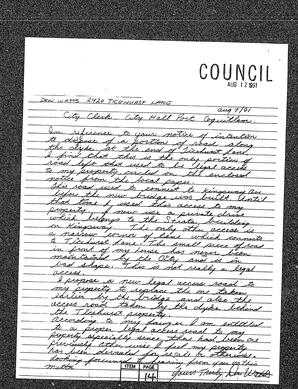 COUNCIL
AUG 12 1991
DON WATTS 2420 TEEHURST LANE
Aug 7/91
City Clerk. City Hall Port Coquitlam.
In reference to your notice of intention
to dispose of a portion of road along
the dyke at the end of
I find that this is the only portion of
road left that used to be legal access
to my property, circled on the enclosed
notice from the local paper.
This road used to connect to Kingsway Ave
before the new bridge was built. Until
that time I used this access to my
property. I now use a private drive
which belongs to the Strata building
on Kingsway. The only other access is
a narrow corner of lane which connects
to lane. The small piece of lane
in front of my lane has never been
maintained by the City and is in
bad shape. This is not really a legal
access.
I propose a new legal access road to
my property to replace the one taken
earlier by the bridge and also the
access road taken by the dyke behind
the property.
According to my lawyer I am entitled
to a proper legal access road to my
property especially since there had been one
previously otherwise I feel my property
has been devalued for resale or otherwise.
Looking forward to hearing from you on this
matter
Yours Truly Don Watts
ITEM PAGE
14